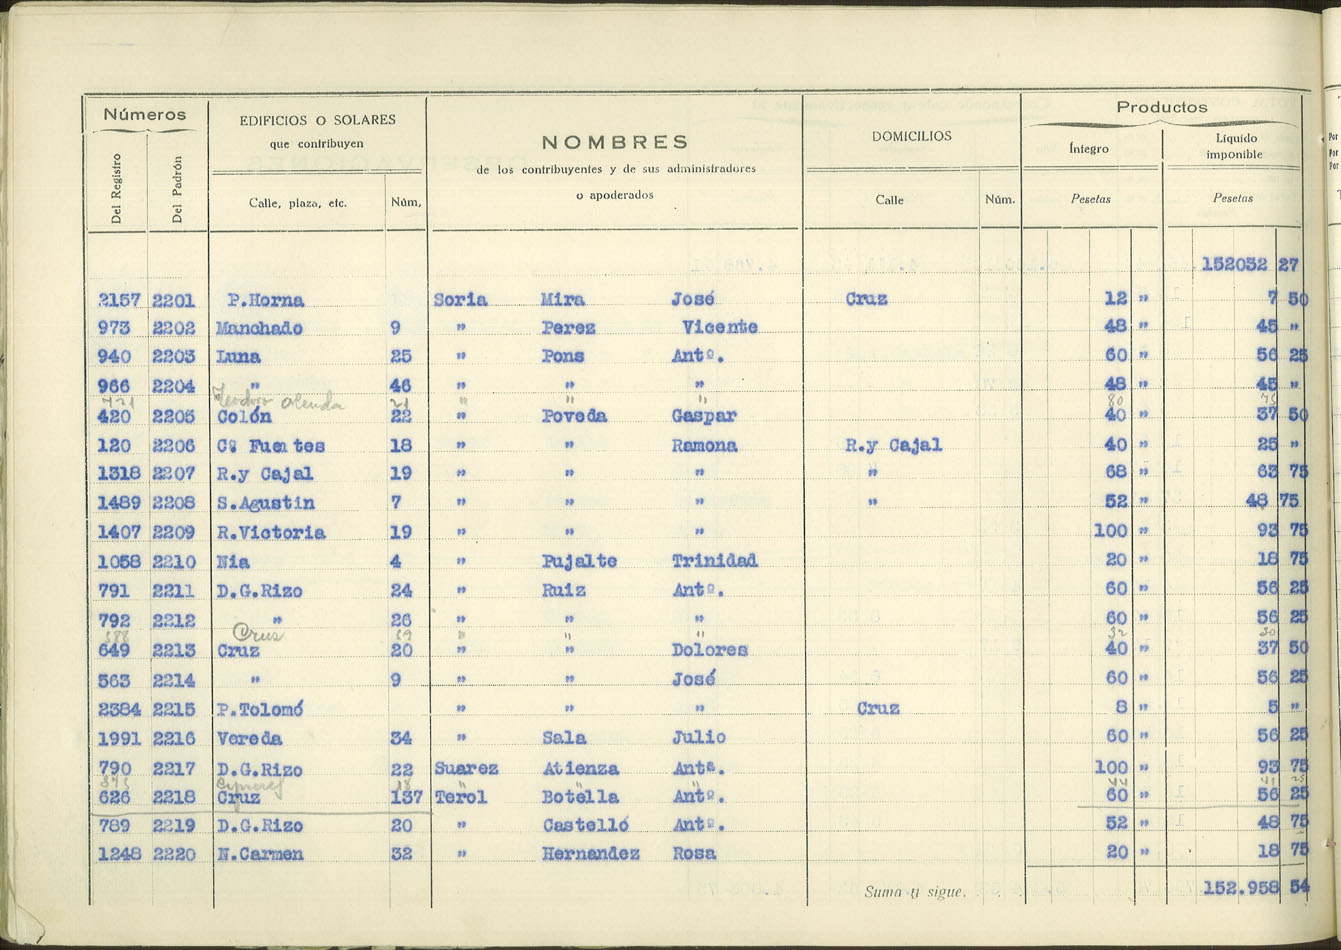 Números
EDIFICIOS O SOLARES
que contribuyen
NOMBRES
de los contribuyentes y de sus administradores
o apoderados
DOMICILIOS
Productos
Íntegro
Líquido
imponible
Del Registro Del Padrón Calle, plaza, etc. Núm, Calle Núm. Pesetas Pesetas
152032 27
2157 2201 P.Horna Soria Mira José Cruz 12 " 7 50
973 2202 Manchado 9 " Perez Vicente 48 " 45 "
940 2203 Luna 25 " Pons Antº. 60 " 56 25
966 2204 " 46 " " " 48 " 45 "
721 Teodoro Alenda 21 " " " 80 75
420 2205 Colón 22 " Poveda Gaspar 40 " 37 50
120 2206 Cº Fuentes 18 " " Ramona R.y Cajal 40 " 25 "
1318 2207 R.y Cajal 19 " " " " 68 " 63 75
1489 2208 S.Agustin 7 " " " " 52 " 48 75
1407 2209 R.Victoria 19 " " " 100 " 93 75
1058 2210 Nia 4 " Pujalte Trinidad 20 " 18 75
791 2211 D.G.Rizo 24 " Ruiz Antº. 60 " 56 25
792 2212 " 26 " " " 60 " 56 25
588 Cruz 59 " " " 32 30
649 2213 Cruz 20 " " Dolores 40 " 37 50
563 2214 " 9 " " José 60 " 56 25
2384 2215 P.Tolomó " " " Cruz 8 " 5 "
1991 2216 Vereda 34 " Sala Julio 60 " 56 25
790 2217 D.G.Rizo 22 Suarez Atienza Antª. 100 " 93 75
18 " " " 44 41 25
626 2218 Cruz 137 Terol Botella Antº. 60 " 56 25
789 2219 D.G.Rizo 20 " Castelló Antº. 52 " 48 75
1248 2220 N.Carmen 32 " Hernandez Rosa 20 " 18 75
Suma y sigue. 152.958 54
Por
Por
Por